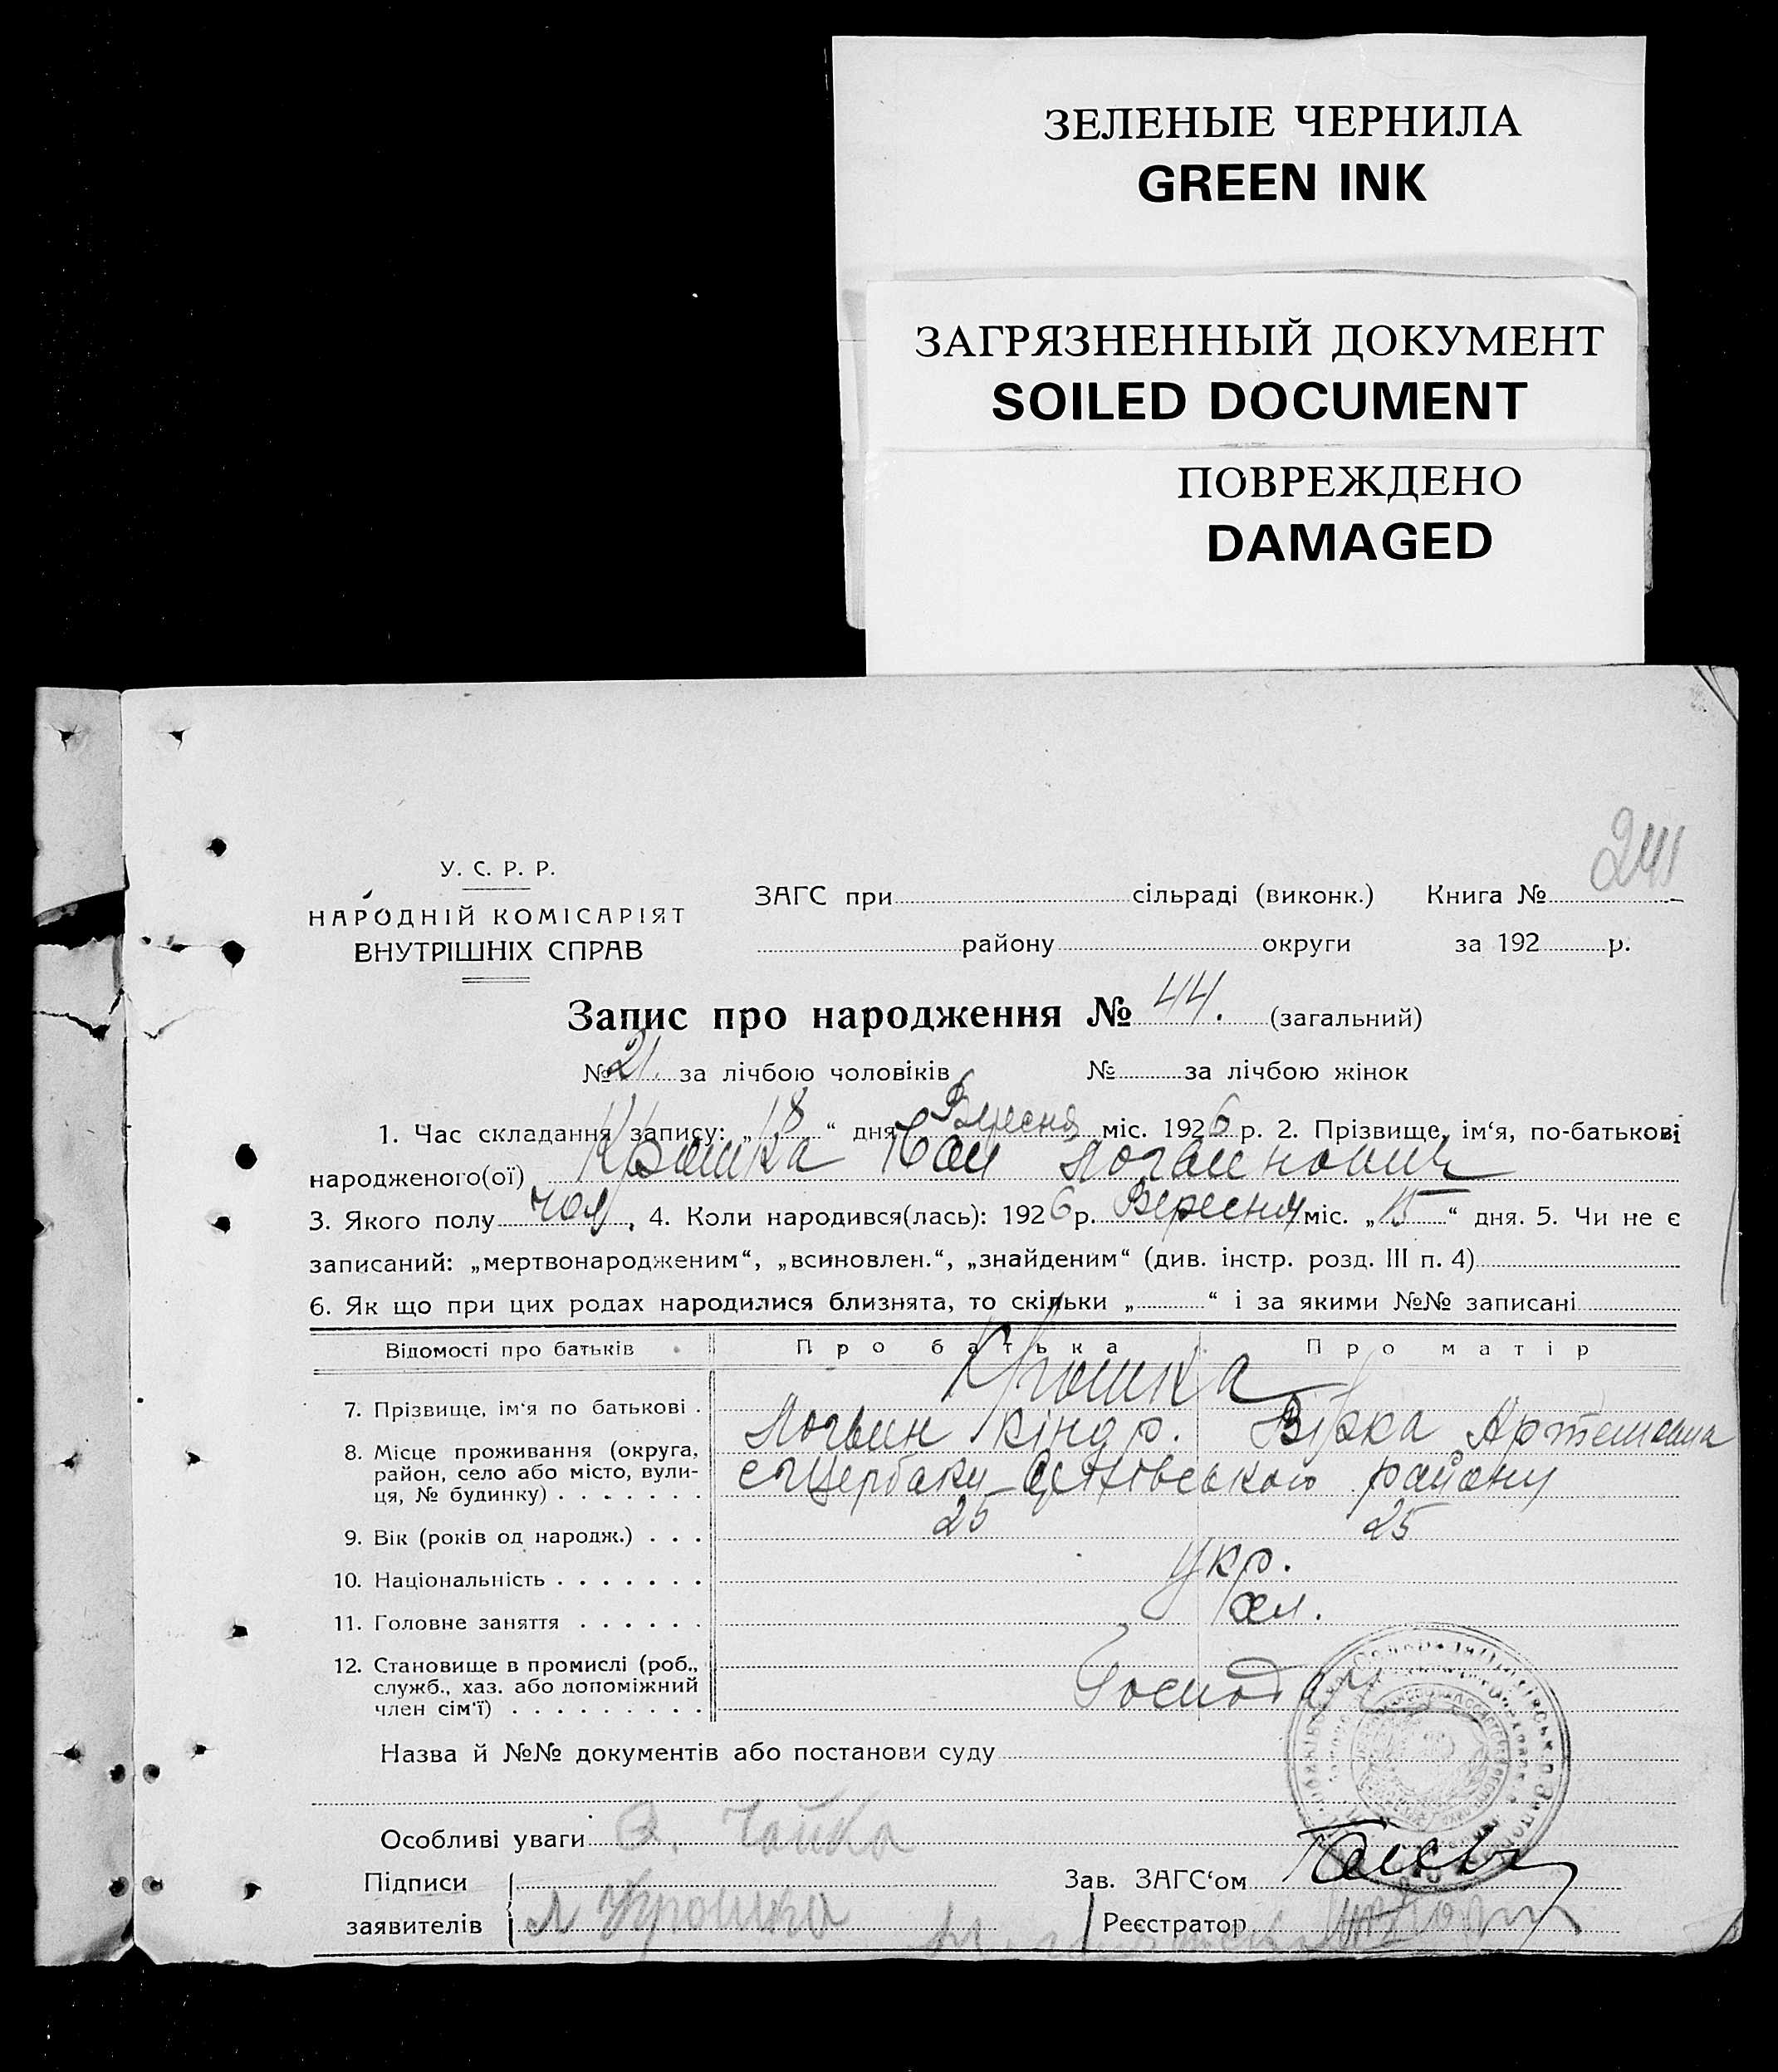 ЗЕЛЕНЫЕ ЧЕРНИЛА
GREEN INK
ЗАГРЯЗНЕННЫЙ ДОКУМЕНТ
SOILED DOCUMENT
ПОВРЕЖДЕНО
DAMAGED
241
У. С. Р. Р.
НАРОДНІЙ КОМІСАРІЯТ
ВНУТРІШНІХ СПРАВ
ЗАГС при сільраді (виконк.) Книга №
району округи за 192 р.
Запис про народження № 44. (загальний)
№ 21. за лічбою чоловіків № за лічбою жінок
1. Час складання запису: „18“ дня Вересня міс. 1926 р. 2. Прізвище, ім‘я, по-батькові
народженого(ої) Крошка Іван Логвинович
3. Якого полу чол, 4. Коли народився(лась): 1926 р. Вересня міс. „15“ дня. 5. Чи не є
записаний: „мертвонародженим“, „всиновлен.“, „знайденим“ (див. інстр. розд. III п. 4)
6. Як що при цих родах народилися близнята, то скільки „ “ і за якими №№ записані
Відомості про батьків Про батька Про матір
Крошка
7. Прізвище, ім‘я по батькові . Логвин Кіндр. Вірка Артемовна
8. Місце проживання (округа, район, село або місто, вулиця, № будинку) . . . . . . . с Щербаки району
9. Вік (років од народж.) . . . 25 25
10. Національність . . . . . . . Укр.
11. Головне заняття . . . . . . хл.
12. Становище в промислі (роб., служб., хаз. або допоміжний член сім‘ї) . . . . . . . . . Господар
Назва й №№ документів або постанови суду
Особливі уваги Чайка
Підписи
заявителів Л Крошка
Зав. ЗАГС‘ом
Реєстратор